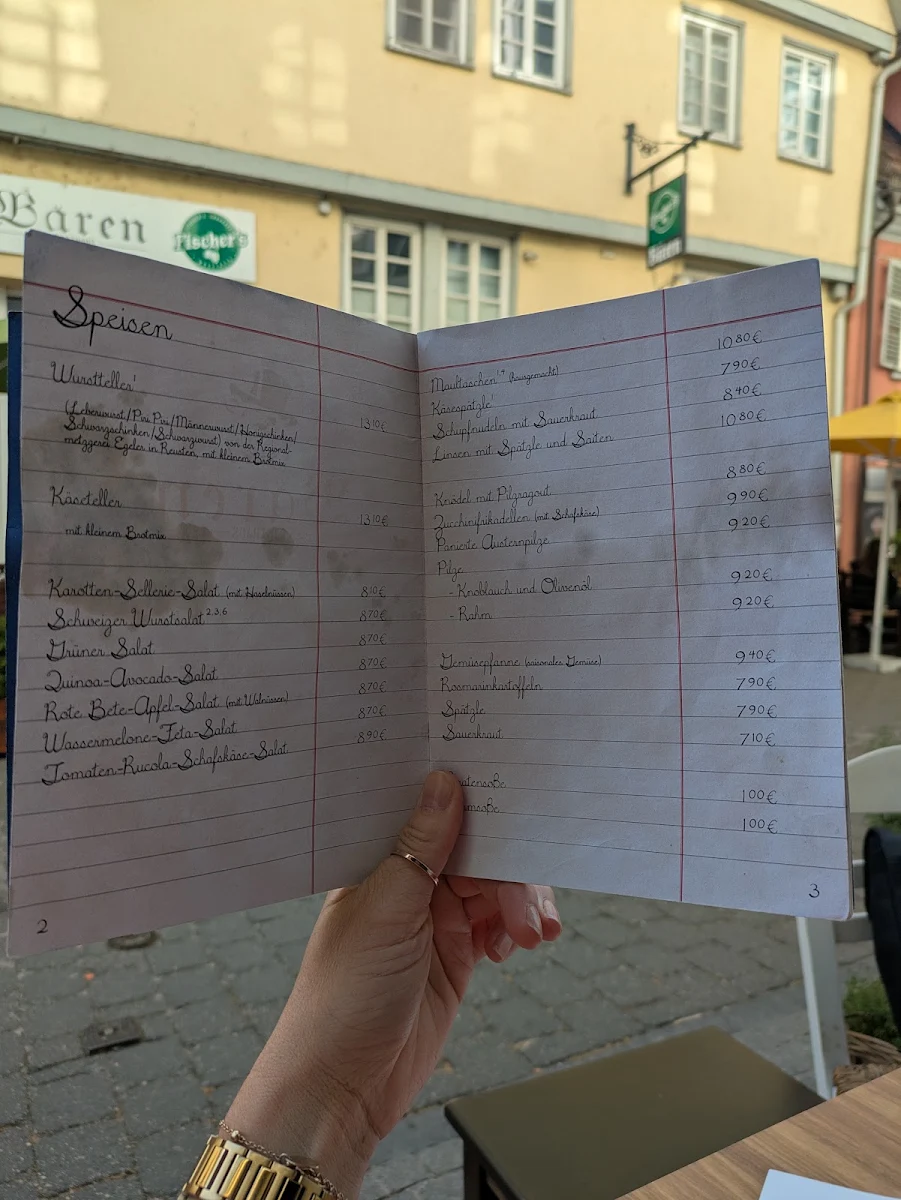 Bären
Fischer's
Speisen
Wurstteller¹
(Leberwurst/Piri Piri/Männerwurst/Honigschinken/
Schwarzschinken/Schwarzwurst) von der Regional-
metzgerei Egeler in Reusten, mit kleinem Brotmix
13 10 €
Käseteller
mit kleinem Brotmix
13 10 €
Karotten-Sellerie-Salat (mit Haselnüssen) 8 10 €
Schweizer Wurstsalat 2,3,6 8 70 €
Grüner Salat 8 70 €
Quinoa-Avocado-Salat 8 70 €
Rote Bete-Apfel-Salat (mit Walnüssen) 8 70 €
Wassermelone-Feta-Salat 8 70 €
Tomaten-Rucola-Schafskäse-Salat 8 90 €
2
Maultaschen (hausgemacht) 10 80 €
Käsespätzle¹ 7 90 €
Schupfnudeln mit Sauerkraut 8 40 €
Linsen mit Spätzle und Saiten 10 80 €
Knödel mit Pilzragout 8 80 €
Zucchinifrikadellen (mit Schafskäse) 9 90 €
Panierte Austernpilze 9 20 €
Pilze
- Knoblauch und Olivenöl 9 20 €
- Rahm 9 20 €
Gemüsepfanne (saisonales Gemüse) 9 40 €
Rosmarinkartoffeln 7 90 €
Spätzle 7 90 €
Sauerkraut 7 10 €
1 00 €
1 00 €
3